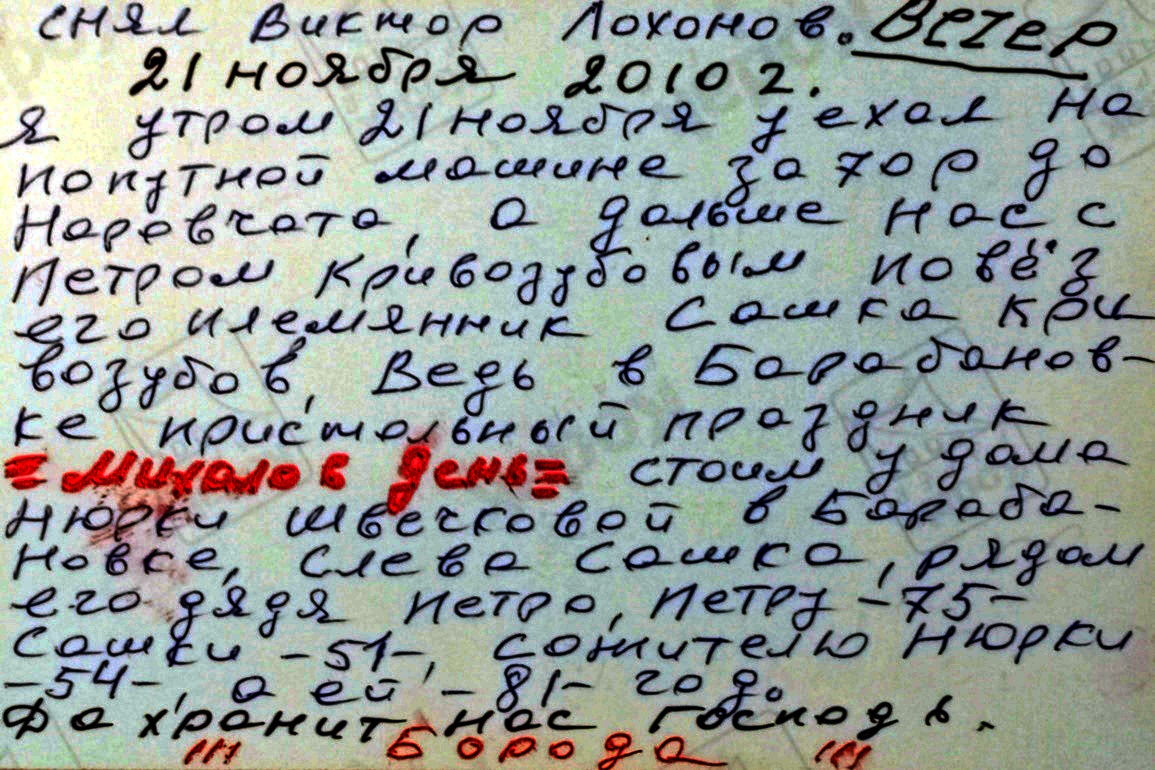 снял Виктор Лохонов. Вечер
21 ноября 2010 г.
я утром 21 ноября уехал на
попутной машине за 70 р до
Наровчата, а дальше нас с
Петром Кривозубовым повёз
его племянник Сашка Кри
возубов, Ведь в Барабанов-
ке пристольный праздник
= Михалов день= стоим у дома
Нюрки Швечковой в Бараба-
новке, слева Сашка, рядом
его дядя Петро, Петру -75-
Сашки -51-, сожителю Нюрки
-54-, а ей -81- год.
Да хранит нас Господь.
!!! Борода !!!